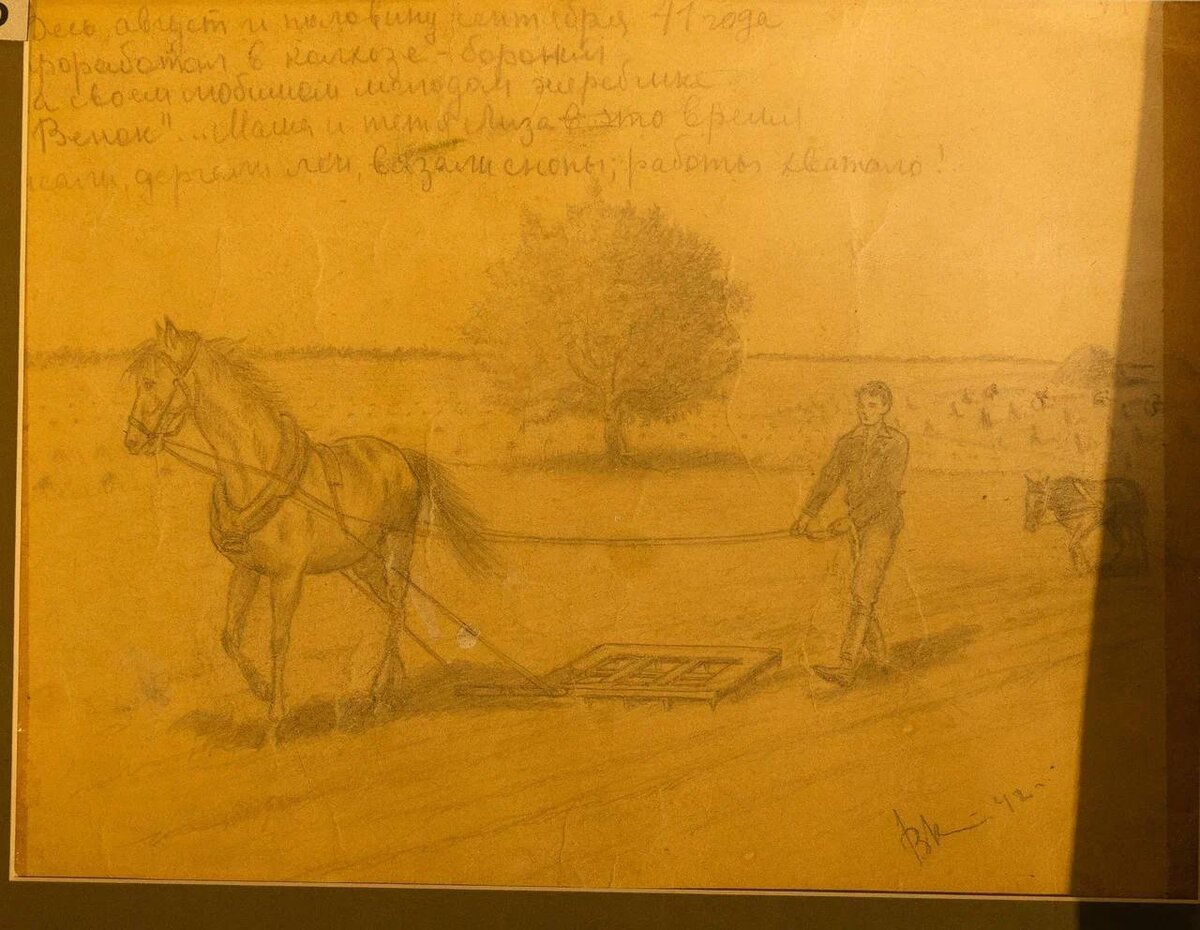 Весь август и половину сентября 41 года
проработал в колхозе - боронил
на своем любимом молодом жеребчике
"Венок"... Маша и тетя Лиза в это время
жали, дергали лен, вязали снопы; работы хватало!
42 г.